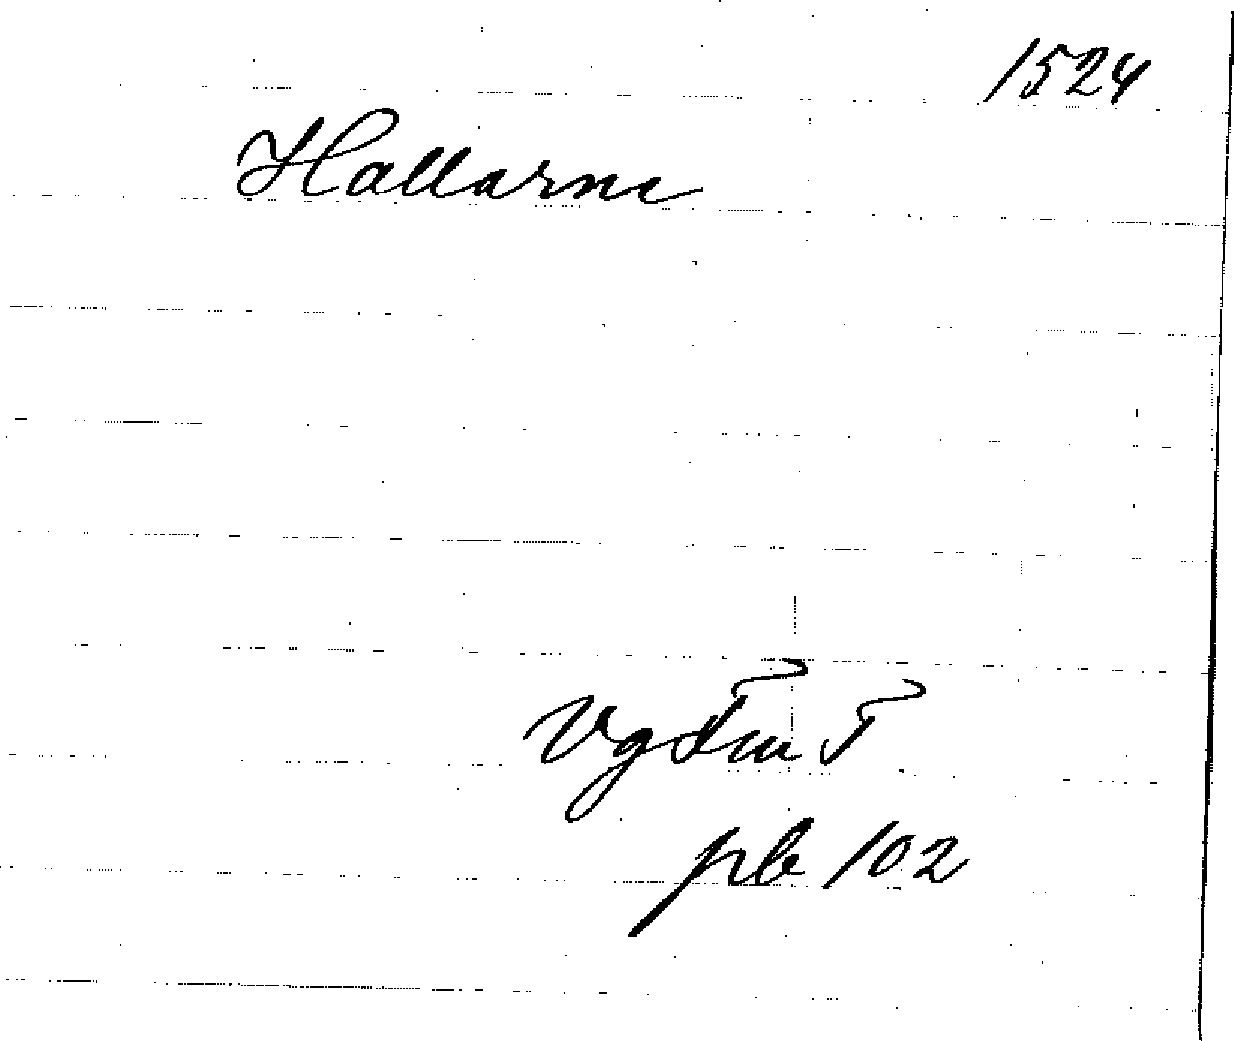 1524
Hallarne
Vg Fru T
pb 102